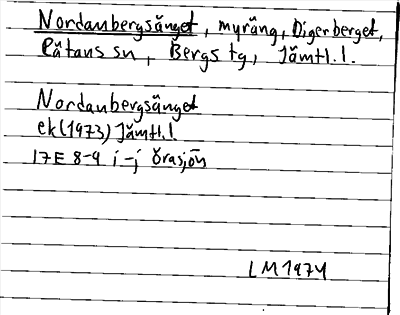 Nordanbergsänget, myräng, Digerberget,
Rätans sn, Bergs tg, Jämtl.l.
Nordanbergsänget
ek (1973) Jämtl.l
17E 8-9 i-j Örasjön
LM 1974